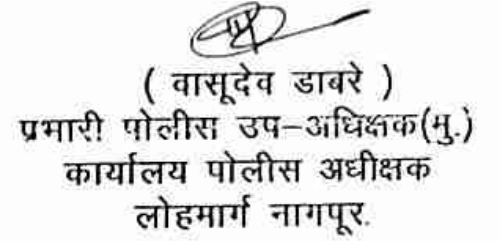 ( वासूदेव डाबरे )
प्रभारी पोलीस उप-अधिक्षक(मु.)
कार्यालय पोलीस अधीक्षक
लोहमार्ग नागपूर.